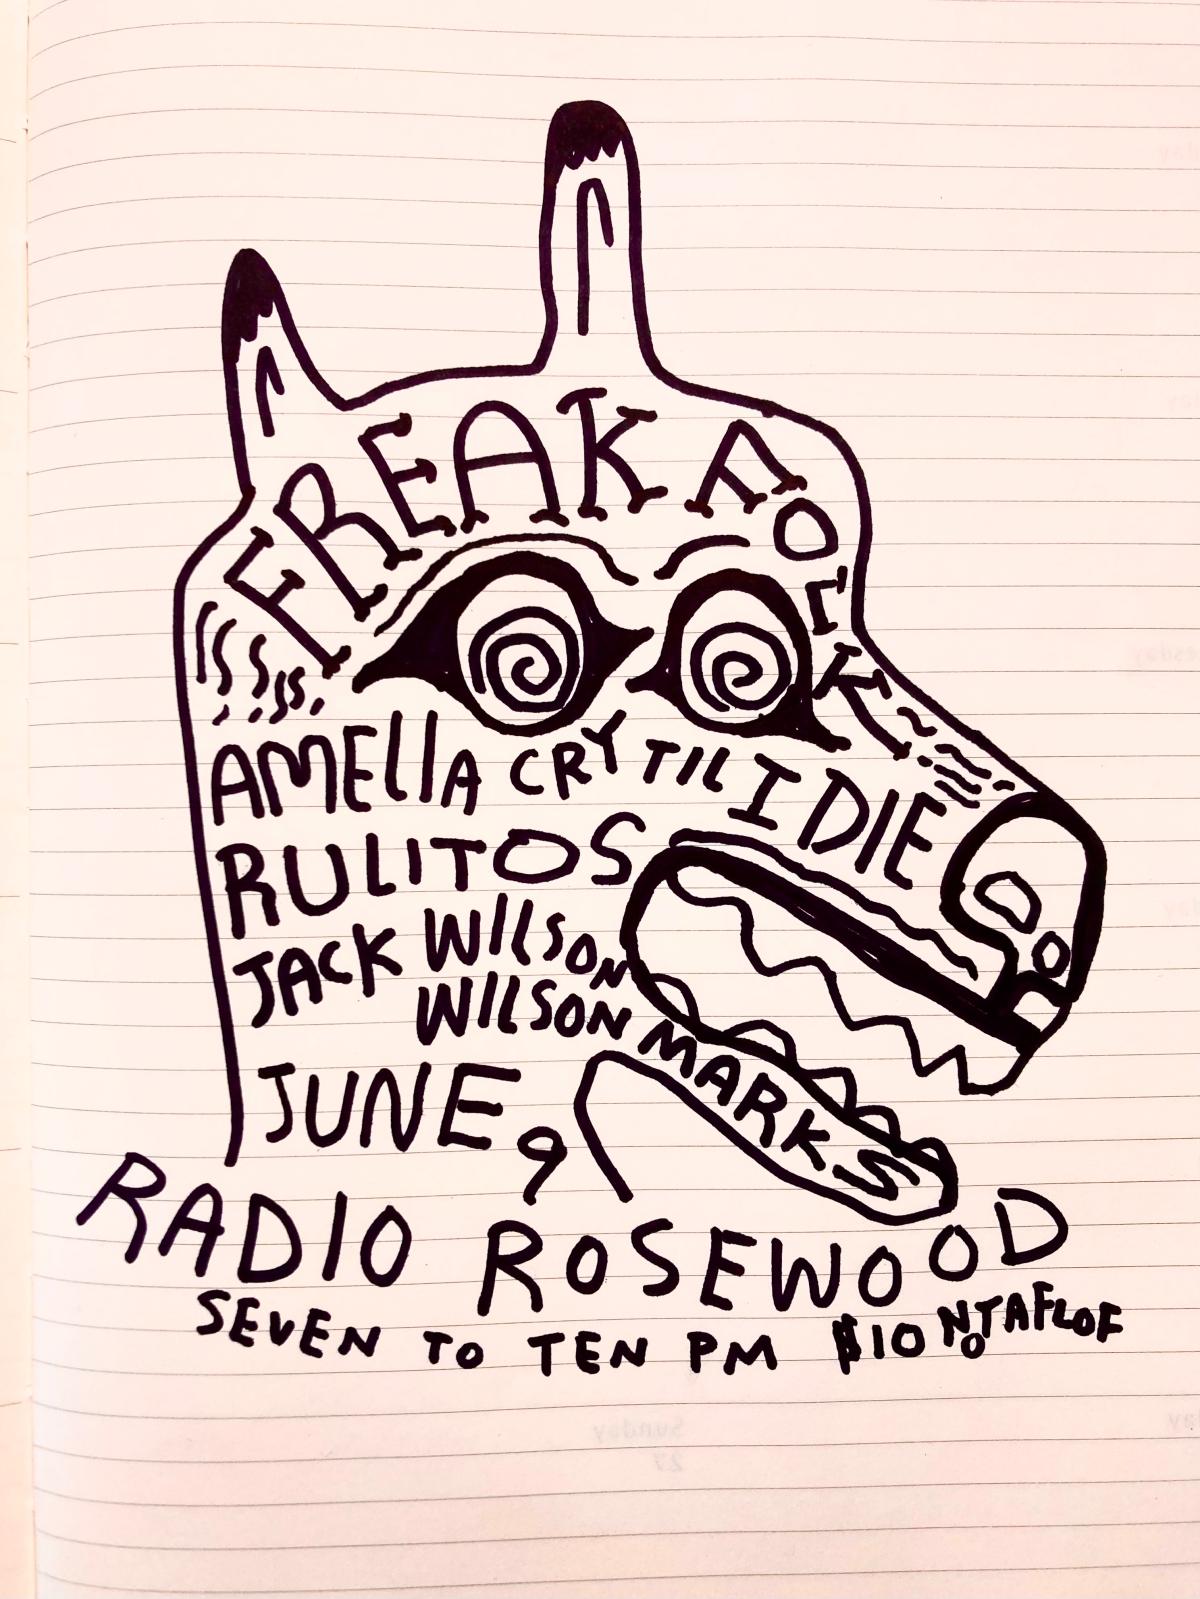 FREAK FOLK
AMELIA CRY TIL I DIE
RULITOS
JACK WILSON
WILSON MARKS
JUNE 9
RADIO ROSEWOOD
SEVEN TO TEN PM $10 NOTAFLOF
Sunday
27